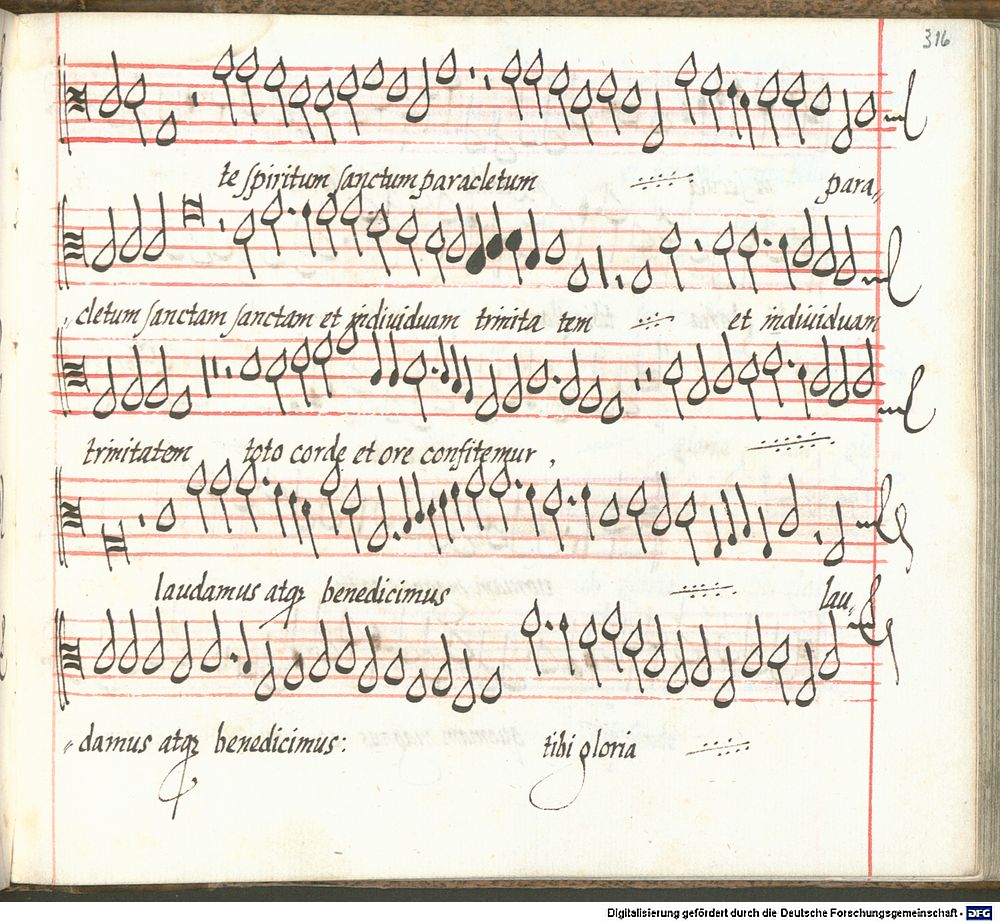 316
te spiritum sanctum paracletum para„
„cletum sanctam sanctam et individuam trinita tem et individuam
trinitatem toto corde et ore confitemur,
laudamus atqꝫ benedicimus lau„
„damus atqꝫ benedicimus: tibi gloria
Digitalisierung gefördert durch die Deutsche Forschungsgemeinschaft - DFG